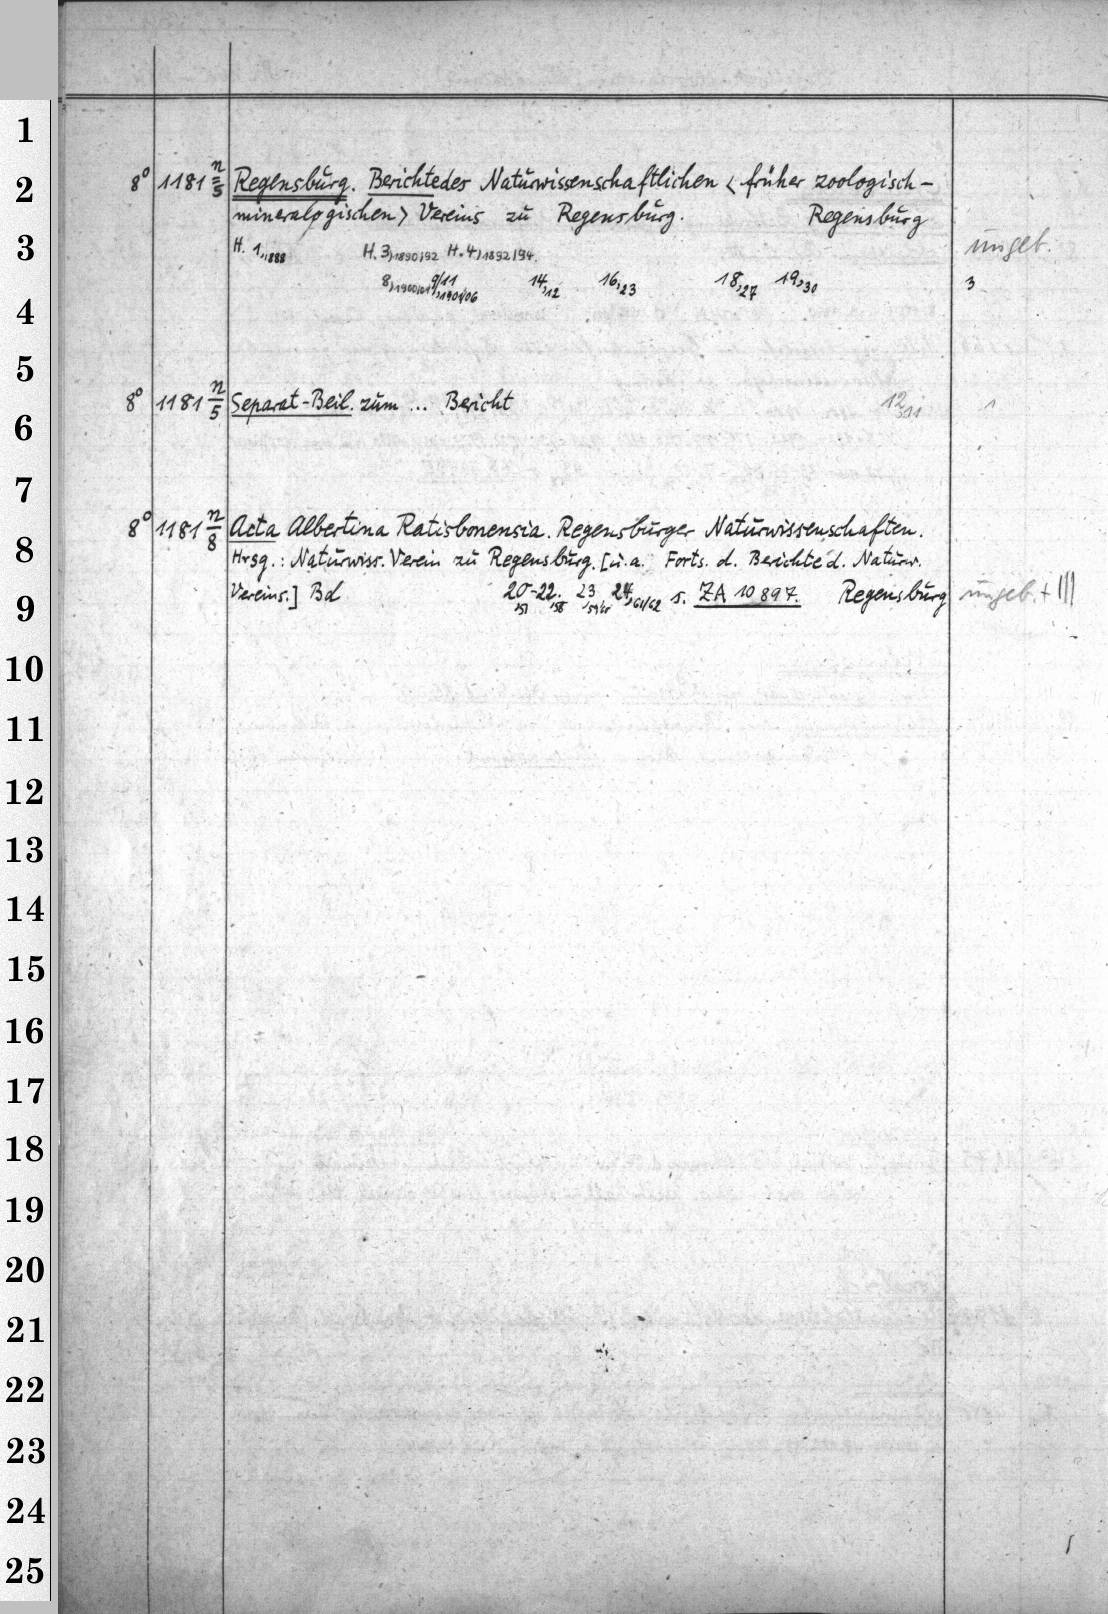 1
2
3
4
5
6
7
8
9
10
11
12
13
14
15
16
17
18
19
20
21
22
23
24
25
8° 1181 n/5 Regensburg. Berichte des Naturwissenschaftlichen < früher zoologisch-
mineralogischen > Vereins zu Regensburg. Regensburg
H. 1,1888 H. 3,1890/92 H. 4,1892/94. ungeb.
8,1900/01 9/11,1901/06 14,12 16,23 18,27 19,30 3
8° 1181 n/5 Separat-Beil. zum ... Bericht 12,1911 1
8° 1181 n/8 Acta Albertina Ratisbonensia. Regensburger Naturwissenschaften.
Hrsg.: Naturwiss. Verein zu Regensburg. [u.a. Forts. d. Berichte d. Naturw.
Vereins.] Bd 20,51-22,58. 23 24,61/62 s. ZA 10897. Regensburg ungeb. + |||